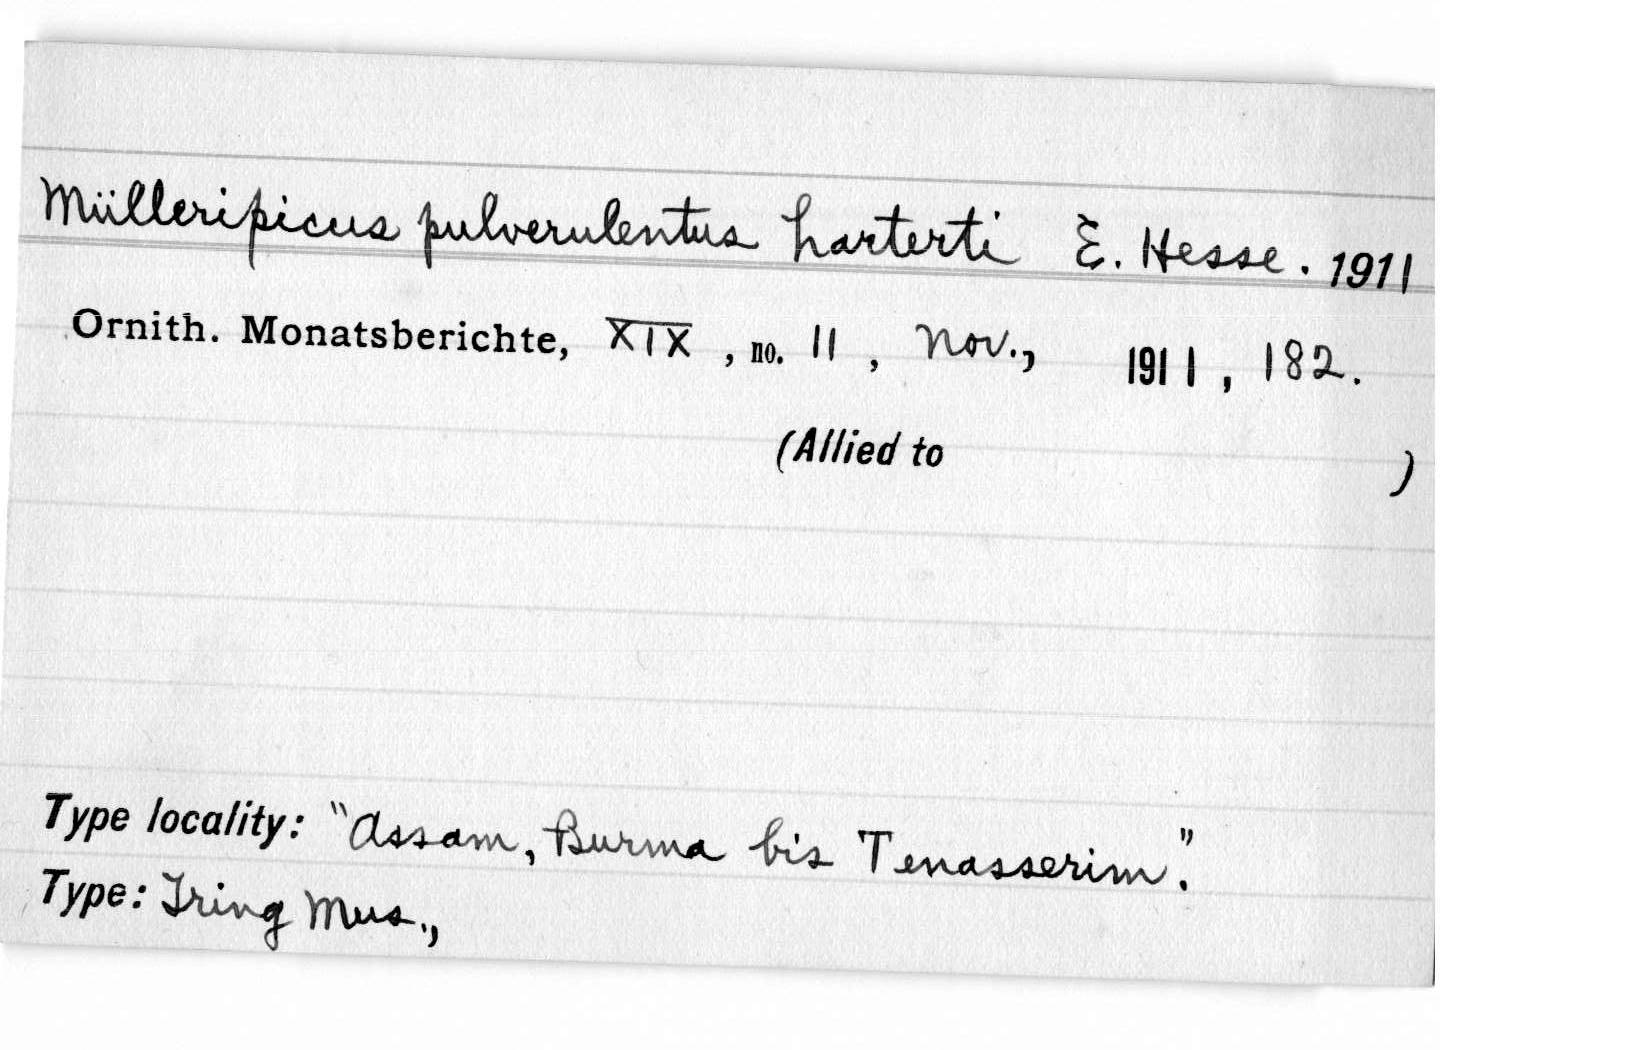 Mülleripicus pulverulentus harterti E. Hesse. 1911
Ornith. Monatsberichte, XIX, no. 11, Nov., 1911, 182.
(Allied to )
Type locality: "Assam, Burma bis Tenasserim."
Type: Tring Mus.,